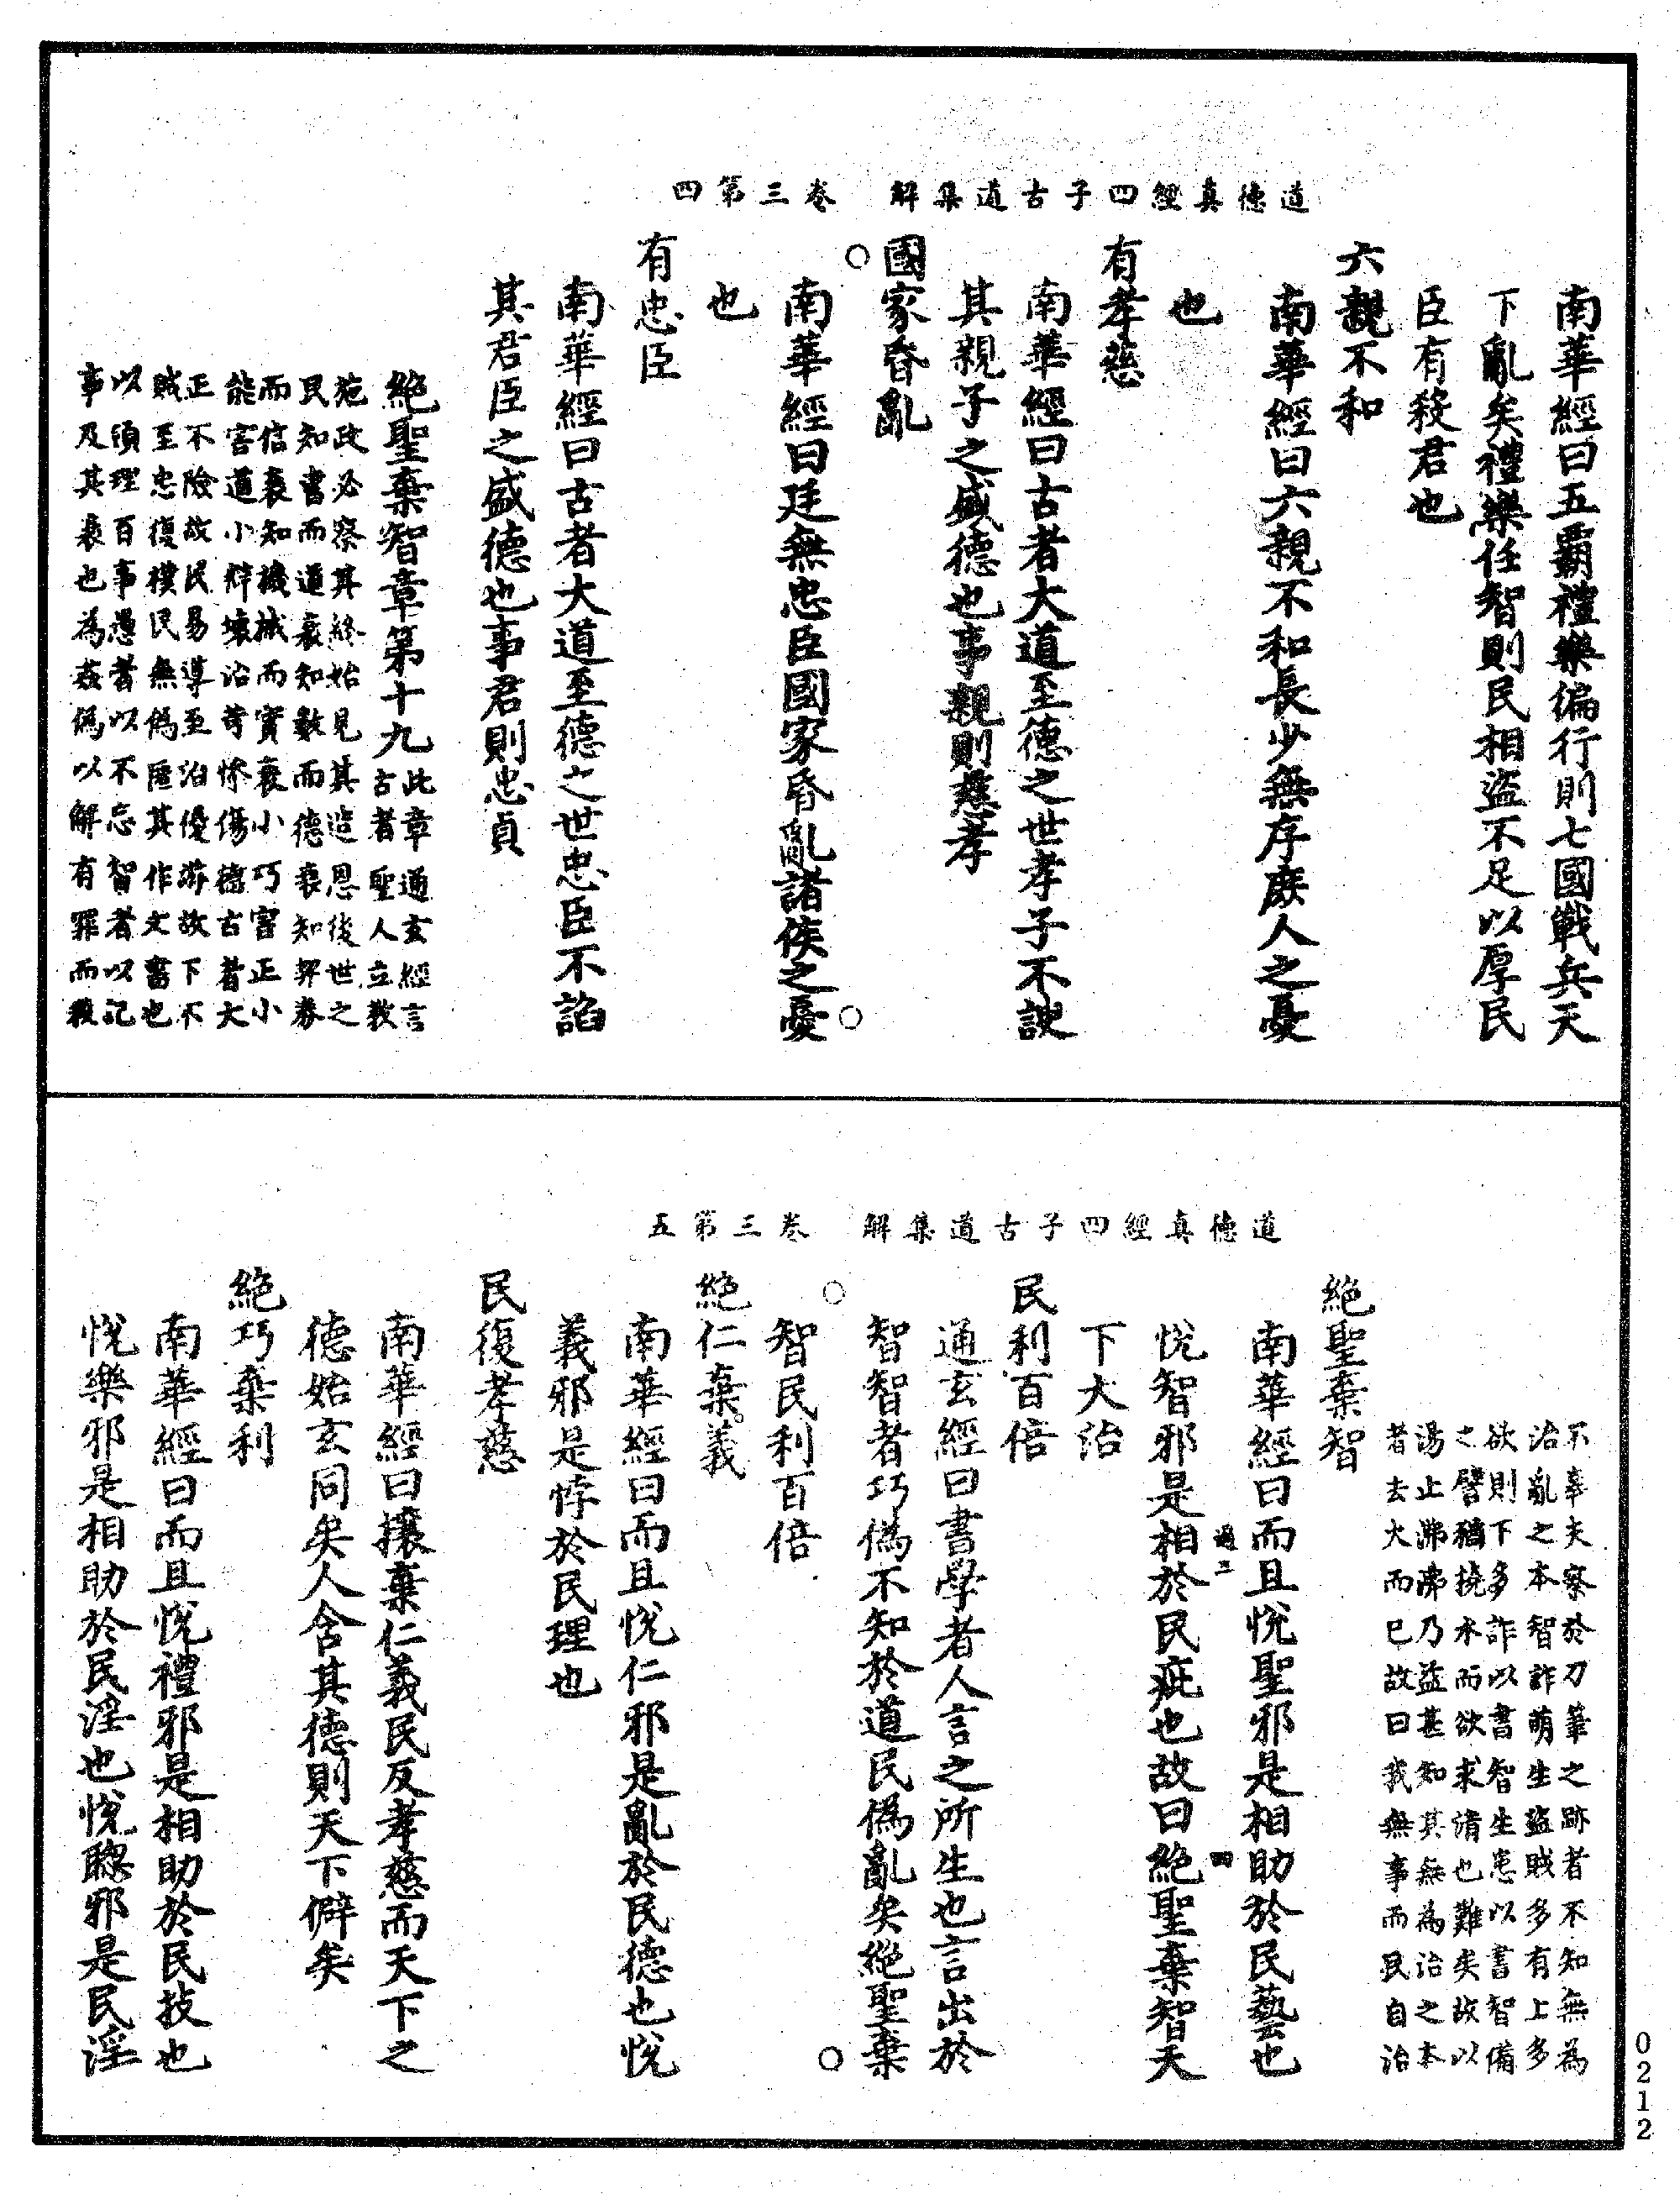 道德真經四子古道集解　卷三第四
南華經曰五霸禮樂偏行則七國戰兵天
下亂矣禮樂任智則民相盜不足以厚民
臣有殺君也
六親不和
南華經曰六親不和長少無序庶人之憂
也
有孝慈
南華經曰古者大道至德之世孝子不諛
其親子之盛德也事親則慈孝
國家昏亂
南華經曰廷無忠臣國家昏亂諸侯之憂
也
有忠臣
南華經曰古者大道至德之世忠臣不諂
其君臣之盛德也事君則忠貞
絶聖棄智章第十九
此章通玄經言
古者聖人立教
施政必察其終始見其造恩後世之
民知書而道衰知數而德衰知契券
而信衰知機械而實衰小巧害正小
能害道小辯壞治苛慘傷德古者大
正不險故民易導至治優游故下不
賊至忠復樸民無偽匿其作文書也
以領理百事愚者以不忘智者以記
事及其衰也為姦偽以解有罪而殺
道德真經四子古道集解　卷三第五
不辜夫察於刀筆之跡者不知無為
治亂之本智詐萌生盜賊多有上多
欲則下多詐以書智生患以書智備
之譬猶撓水而欲求清也難矣故以
湯止沸沸乃益甚知其無為治之本
者去大而已故曰我無事而民自治
絶聖棄智
南華經曰而且悅聖邪是相助於民藝也
過三　四
悅智邪是相於民疵也故曰絶聖棄智天
下大治
民利百倍
通玄經曰書學者人言之所生也言出於
智智者巧偽不知於道民偽亂矣絶聖棄
智民利百倍
絶仁棄義
南華經曰而且悅仁邪是亂於民德也悅
義邪是悖於民理也
民復孝慈
南華經曰攘棄仁義民反孝慈而天下之
德始玄同矣人含其德則天下僻矣
絶巧棄利
南華經曰而且悅禮邪是相助於民技也
悅樂邪是相助於民淫也悅聰邪是民淫
0212